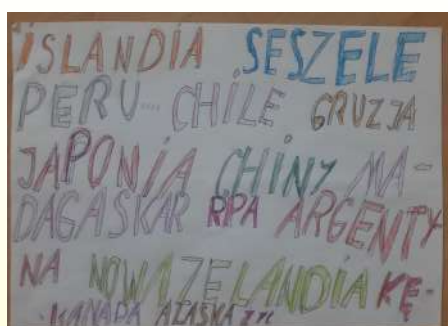 ISLANDIA SESZELE
PERU... CHILE GRUZJA
JAPONIA CHINY MA-
DAGASKAR RPA ARGENTY-
NA NOWA ZELANDIA KĘ-
KANADA ALASKA